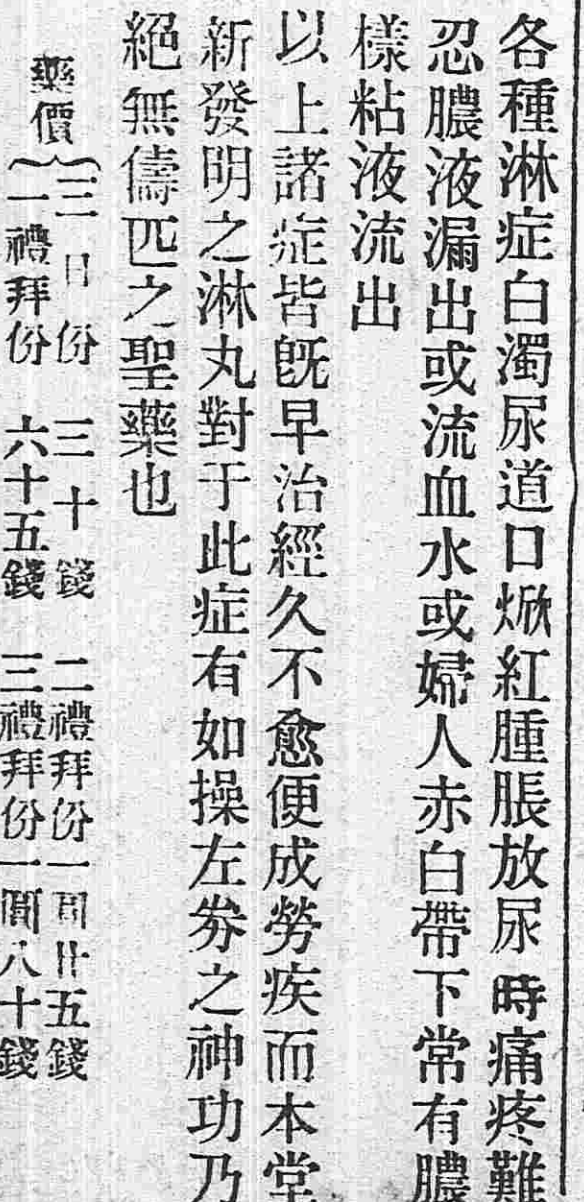 各種淋症白濁尿道口焮紅腫脹放尿時痛疼難
忍膿液漏出或流血水或婦人赤白帶下常有膿
樣粘液流出
以上諸症皆旣早治經久不愈便成勞疾而本堂
新發明之淋丸對于此症有如操左劵之神功乃
絕無儔匹之聖藥也
藥價
三日份 三十錢 二禮拜份一円廿五錢
一禮拜份 六十五錢 三禮拜份一圓八十錢